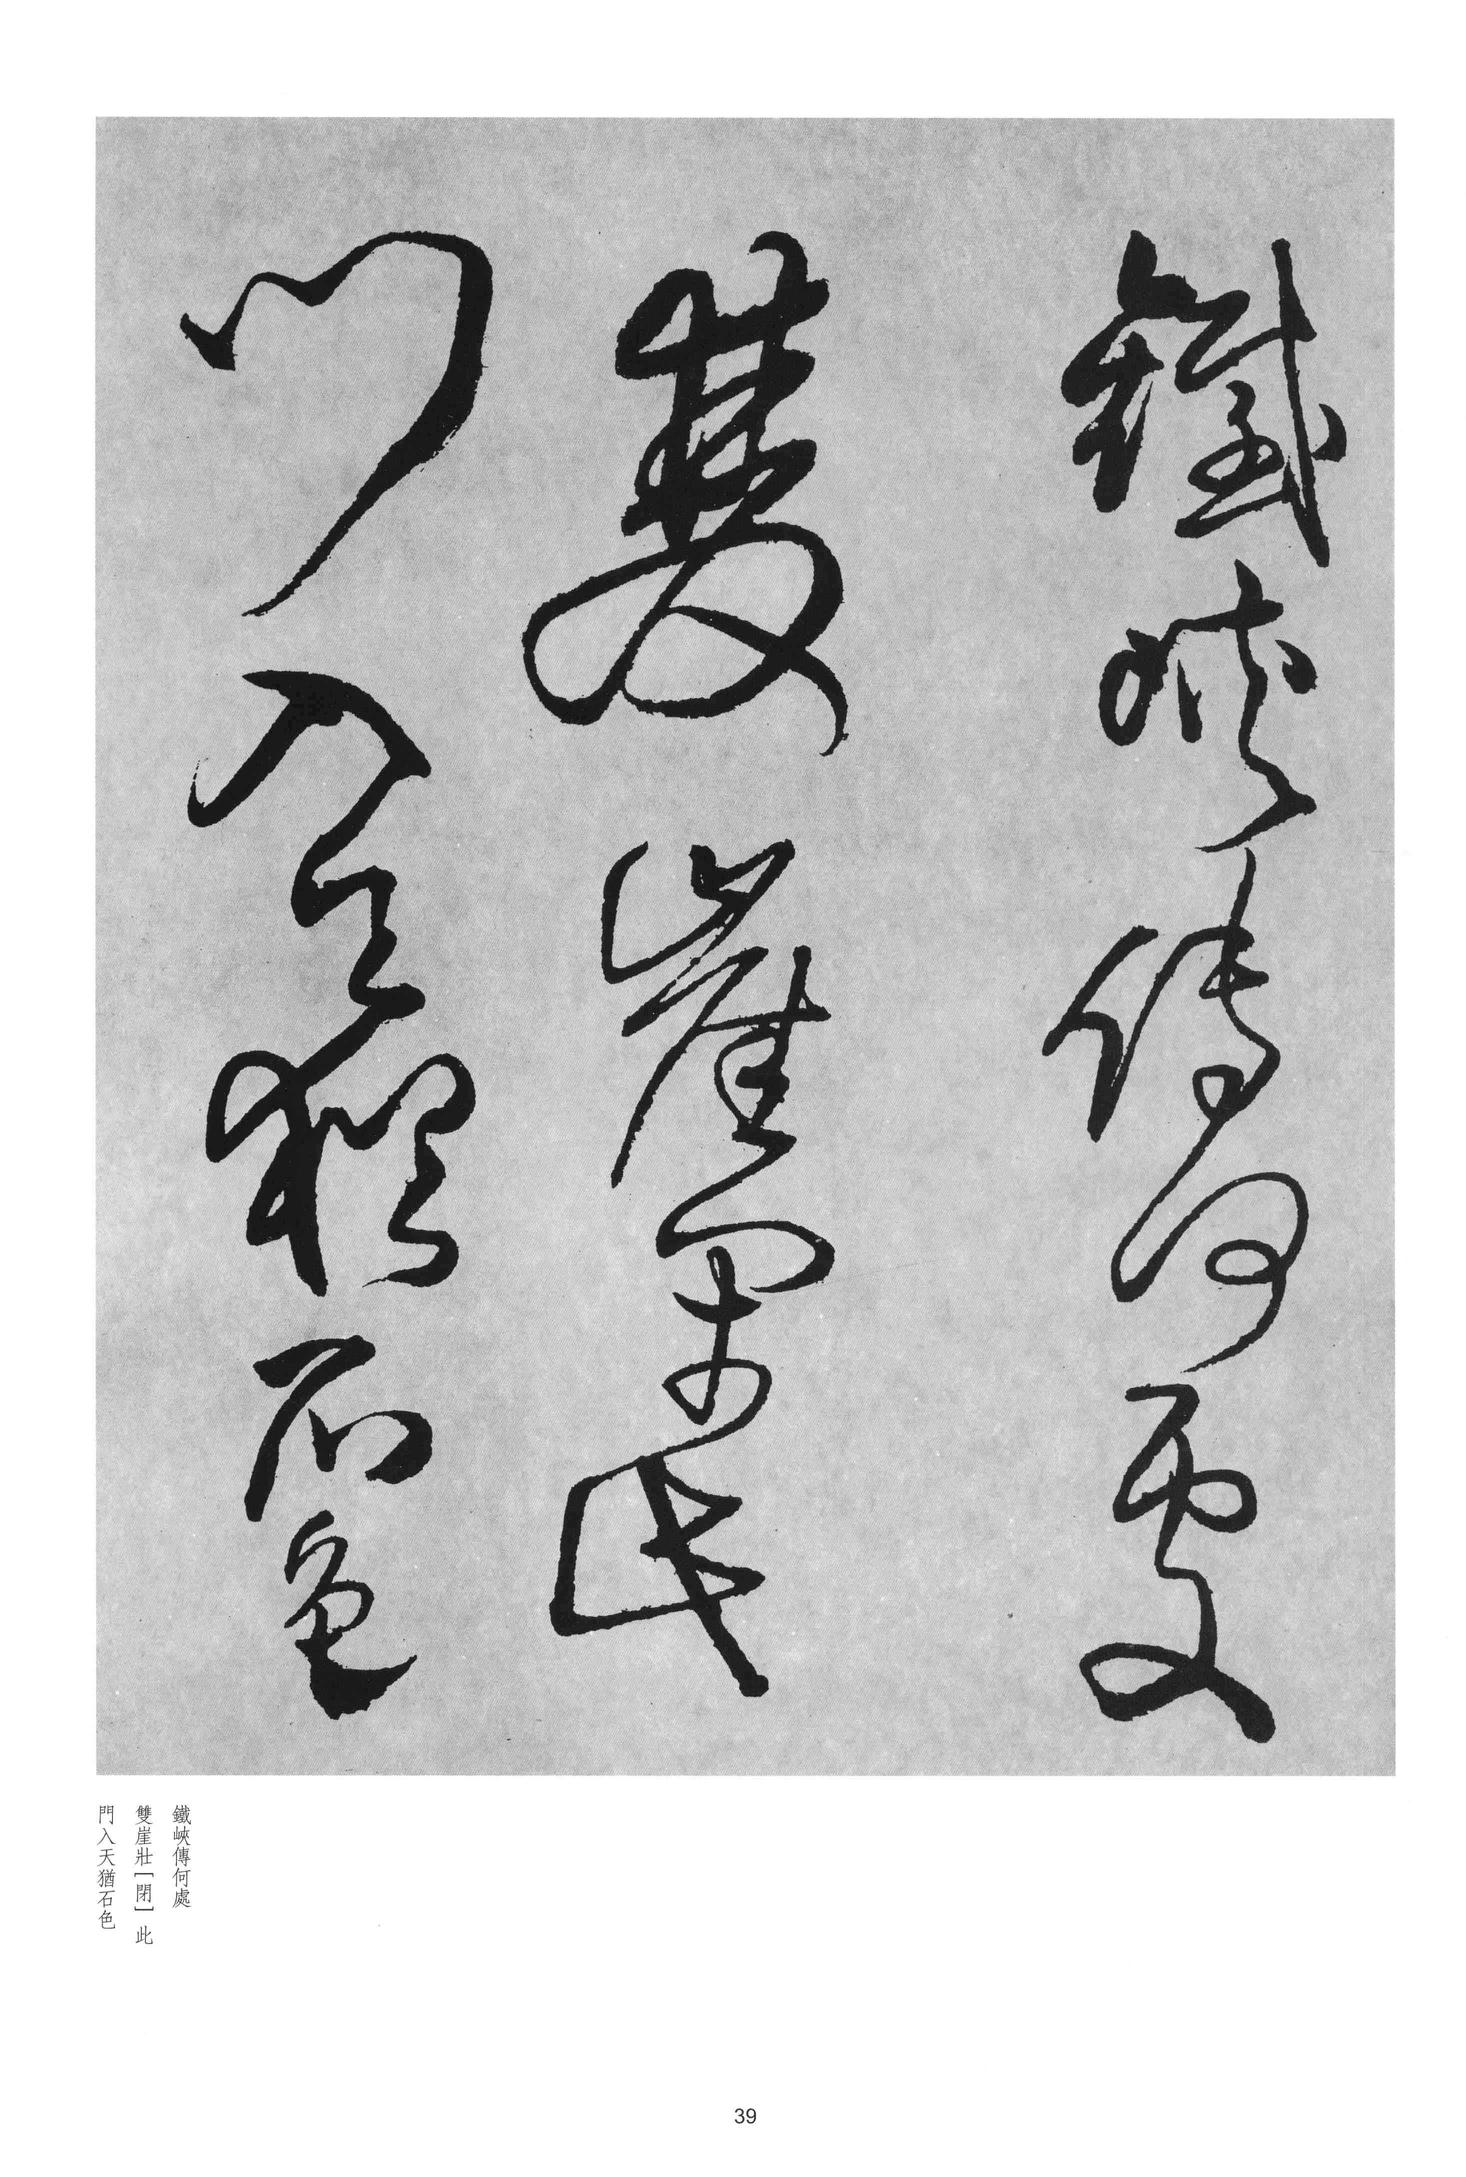 鐵峽傳何處
雙崖閉此
門入天猶石色
鐵峽傳何處
雙崖壯[閉]此
門入天猶石色
39